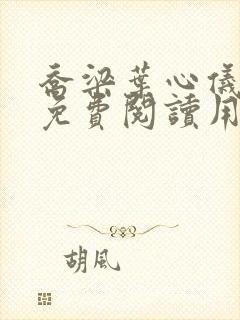 喬梁葉心儀
免費閱讀用
胡風